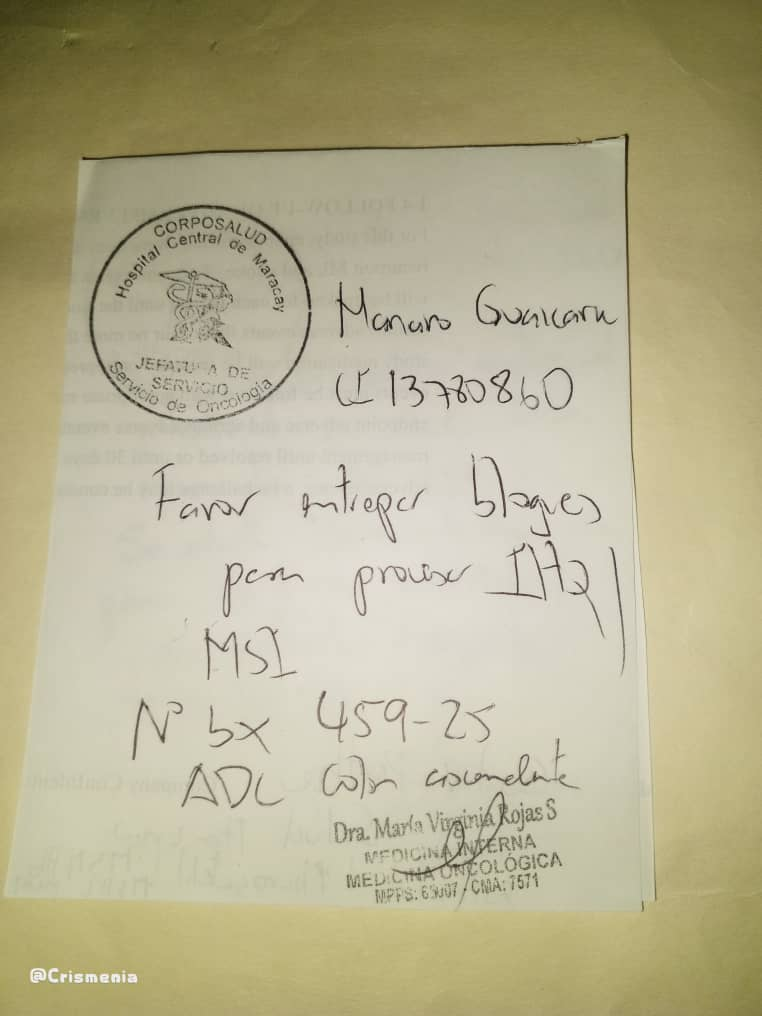 CORPOSALUD
Hospital Central de Maracay
JEFATURA DE
SERVICIO
Servicio de Oncología
CI 13780860
Favor entregar bloques
para procesar IHQ /
MSI
N° bx 459-25
ADC colon ascendente
Dra. María Virginia Rojas S
MEDICINA INTERNA
MEDICINA ONCOLÓGICA
CMA: 7571
@Crismenia